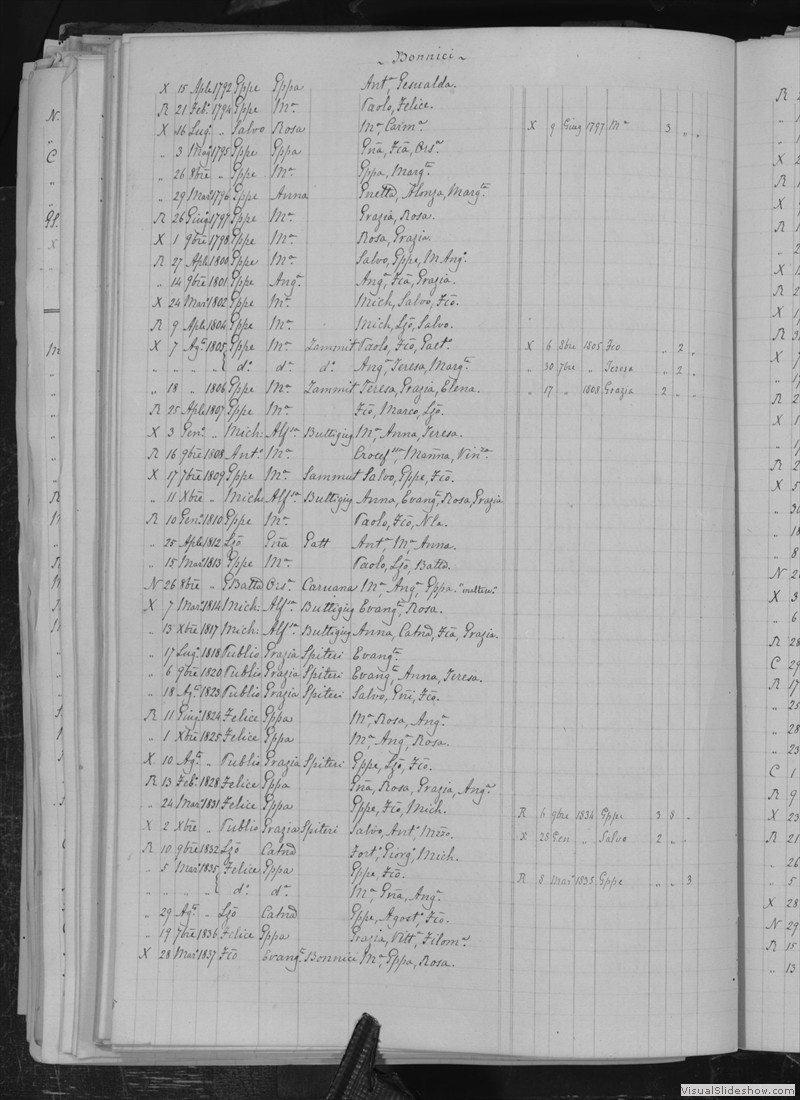 ~ Bonnici ~
X 15 Aple 1792 Gppe Gppa Antª, Gesualda.
R 21 Febº 1794 Gppe Mª Paolo, Felice.
X 16 Lugº „ Salvo Rosa Mª, Carmª. X 9 Giugº 1797 Mª 3 „ „
„ 3 Magº 1795 Gppe Gppa Gña, Fca, Orsª.
„ 26 8bre „ Gppe Mª Gppa, Margª.
„ 29 Marº 1796 Gppe Anna Gnetta, Alonza, Margª.
R 26 Giugº 1797 Gppe Mª Grazia, Rosa.
X 1 9bre 1798 Gppe Mª Rosa, Grazia.
R 27 Aple 1800 Gppe Mª Salvo, Gppe, M. Angº.
„ 14 9bre 1801 Gppe Angª. Angª, Fca, Grazia.
X 24 Marº 1802 Gppe Mª Mich, Salvo, Fco.
R 9 Aple 1804 Gppe Mª Mich, Lzo, Salvo.
X 7 Agº 1805 Gppe Mª Zammit Paolo, Fco, Gaetº. X 6 8bre 1805 Fco „ 2 „
„ „ „ „ { dº dº dº Angª, Teresa, Margª. „ 30 7bre „ Teresa „ 2 „
„ 18 „ 1806 Gppe Mª Zammit Teresa, Grazia, Elena. „ 17 „ 1808 Grazia 2 „ „
R 25 Aple 1807 Gppe Mª Fco, Marco, Lzo.
X 3 Genº „ Mich: Alfsa Buttigieg Mª, Anna, Teresa.
R 16 9bre 1808 Antº Mª Crocefsa, Marina, Vinza.
X 17 7bre 1809 Gppe Mª Sammut Salvo, Gppe, Fco.
„ 11 Xbre „ Mich: Alfsa Buttigieg Anna, Evangª, Rosa, Grazia
R 10 Genº 1810 Gppe Mª Paolo, Fco, Nla.
„ 25 Aple 1812 Lzo Gña Gatt Antª, Mª, Anna.
„ 15 Marº 1813 Gppe Mª Paolo, Lzo, Batta.
N 26 8bre „ GBatta Orsª Caruana Mª, Angª, Gppa.
X 7 Marº 1814 Mich: Alfsa Buttigieg Evangª, Rosa.
„ 13 Xbre 1817 Mich: Alfsa Buttigieg Anna, Catnª, Fca, Grazia.
„ 17 Lugº 1818 Publio Grazia Spiteri Evangª.
„ 6 9bre 1820 Publio Grazia Spiteri Evangª, Anna, Teresa.
„ 18 Agº 1823 Publio Grazia Spiteri Salvo, Gni, Fco.
R 11 Giugº 1824 Felice Gppa Mª, Rosa, Angª.
„ 1 Xbre 1825 Felice Gppa Mª, Angª, Rosa.
X 10 Agº „ Publio Grazia Spiteri Gppe, Lzo, Fco.
R 13 Febº 1828 Felice Gppa Gña, Rosa, Grazia, Angª.
„ 24 Marº 1831 Felice Gppa Gppe, Fco, Mich. R 6 9bre 1834 Gppe 3 8 „
X 2 Xbre „ Publio Grazia Spiteri Salvo, Antº, 28 Gen „ Salvo 2 „ „
R 10 9bre 1832 Lzo Catnª Fortº, Giorgº, Mich.
„ 5 Marº 1835 Felice Gppa Gppe, Fco. R 8 Marº 1835 Gppe „ „ 3
„ „ „ „ { dº dº Mª, Gña, Angª.
„ 29 Agº „ Lzo Catnª Gppe, Agostº, Fco.
„ 19 7bre 1836 Felice Gppa Grazia, Vittª, Filomª.
X 28 Marº 1837 Fco Evangª Bonnici Mª, Gppa, Rosa.
VisualSlideshow.com